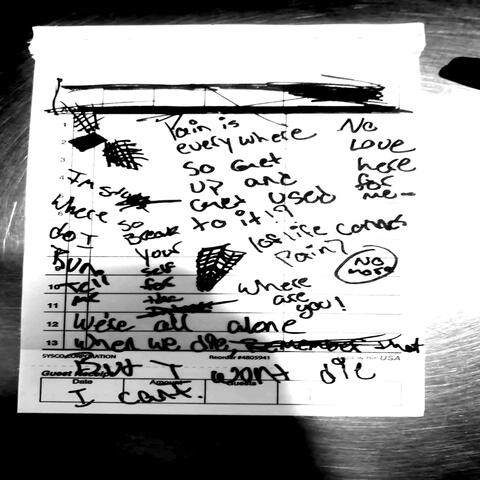 Pain is
everywhere
so Get
up and
Get used
to it!?
No
Love
here
for
me-
I'm
Where
do I
Run
Tell
me
So
Break
your
self
for
the
lof life comes
Pain?
No
more
where
are
you!
We're all alone
when we die Remember that
But I won't die
I can't.
1
3
5
6
10
11
12
13
SYSCO CORPORATION
Reorder #4805941
USA
Guest Receipt
Date
Amount
Guests